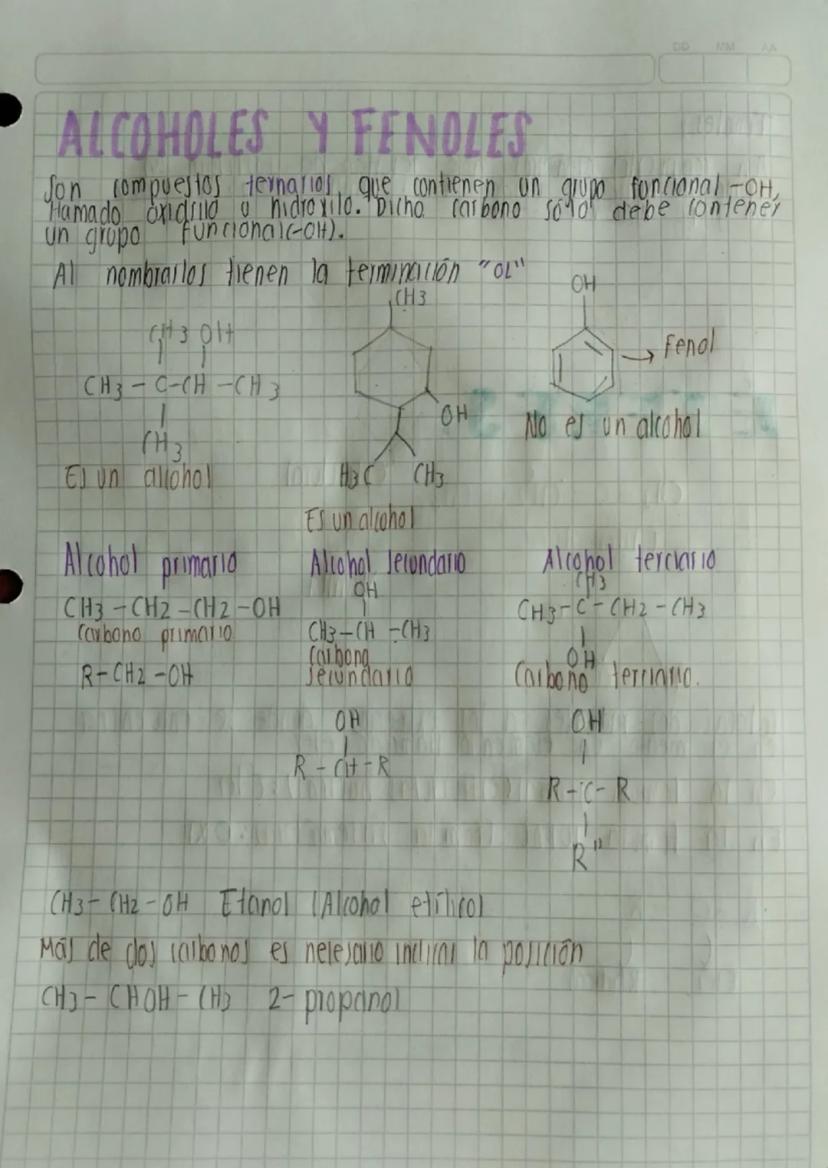 DD MM AA
ALCOHOLES Y FENOLES
Son compuestos ternarios, que contienen un grupo funcional -OH,
llamado oxidrilo u hidroxilo. Dicho carbono sólo debe contener
un grupo funcional(-OH).
Al nombrarlos tienen la terminación "OL"
CH3 OH
CH3 - C-CH -CH3
CH3
Es un alcohol
CH3
OH
H3C CH3
Es un alcohol
OH
→ Fenol
No es un alcohol
Alcohol primario
CH3 -CH2 -CH2 -OH
Carbono primario
R-CH2 -OH
Alcohol secundario
OH
CH3-CH -CH3
Carbono
secundario
OH
R - CH - R
Alcohol terciario
CH3
CH3-C-CH2-CH3
OH
Carbono terciario.
OH
R-C-R
R"
CH3- CH2-OH Etanol (Alcohol etílico)
Más de dos carbonos es necesario indicar la posición
CH3- CHOH-CH3 2- propanol